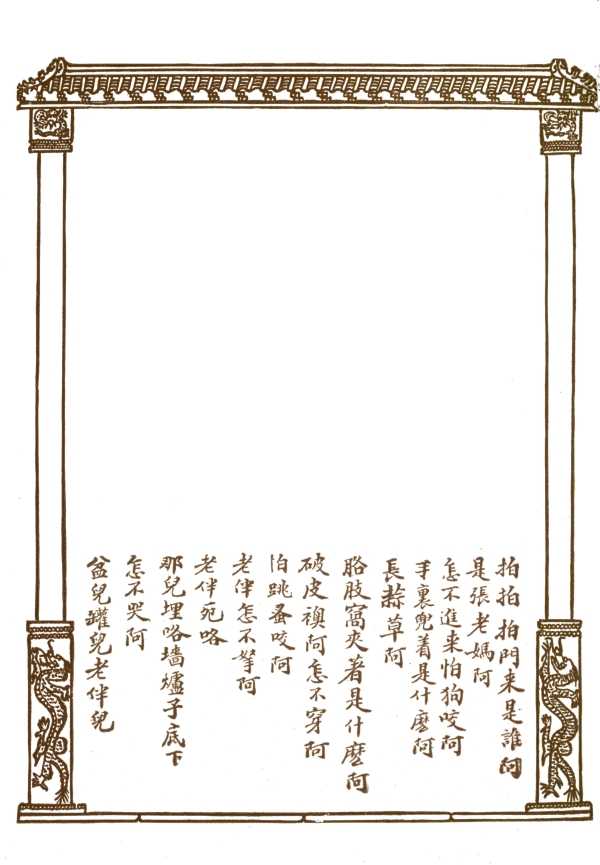 拍拍拍門来是誰阿
是張老媽阿
怎不進来怕狗咬阿
手裏兜着是什麽阿
長蒜草阿
胳肢窩夾著是什麽阿
破皮襖阿怎不穿阿
怕跳蚤咬阿
老伴怎不拏阿
老伴死咯
那兒埋咯墻爐子底下
怎不哭阿
盆兒罐兒老伴兒